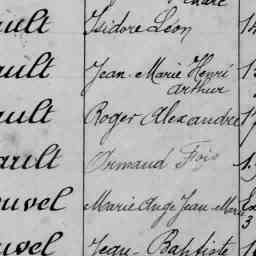 ault Isidore Léon 1
ault Jean Marie Henri
Arthur
ault Roger Alexandre 1
ault Armand 1
uvel Marie Ange Jean Marie
3
uvel Jean-Baptiste 1